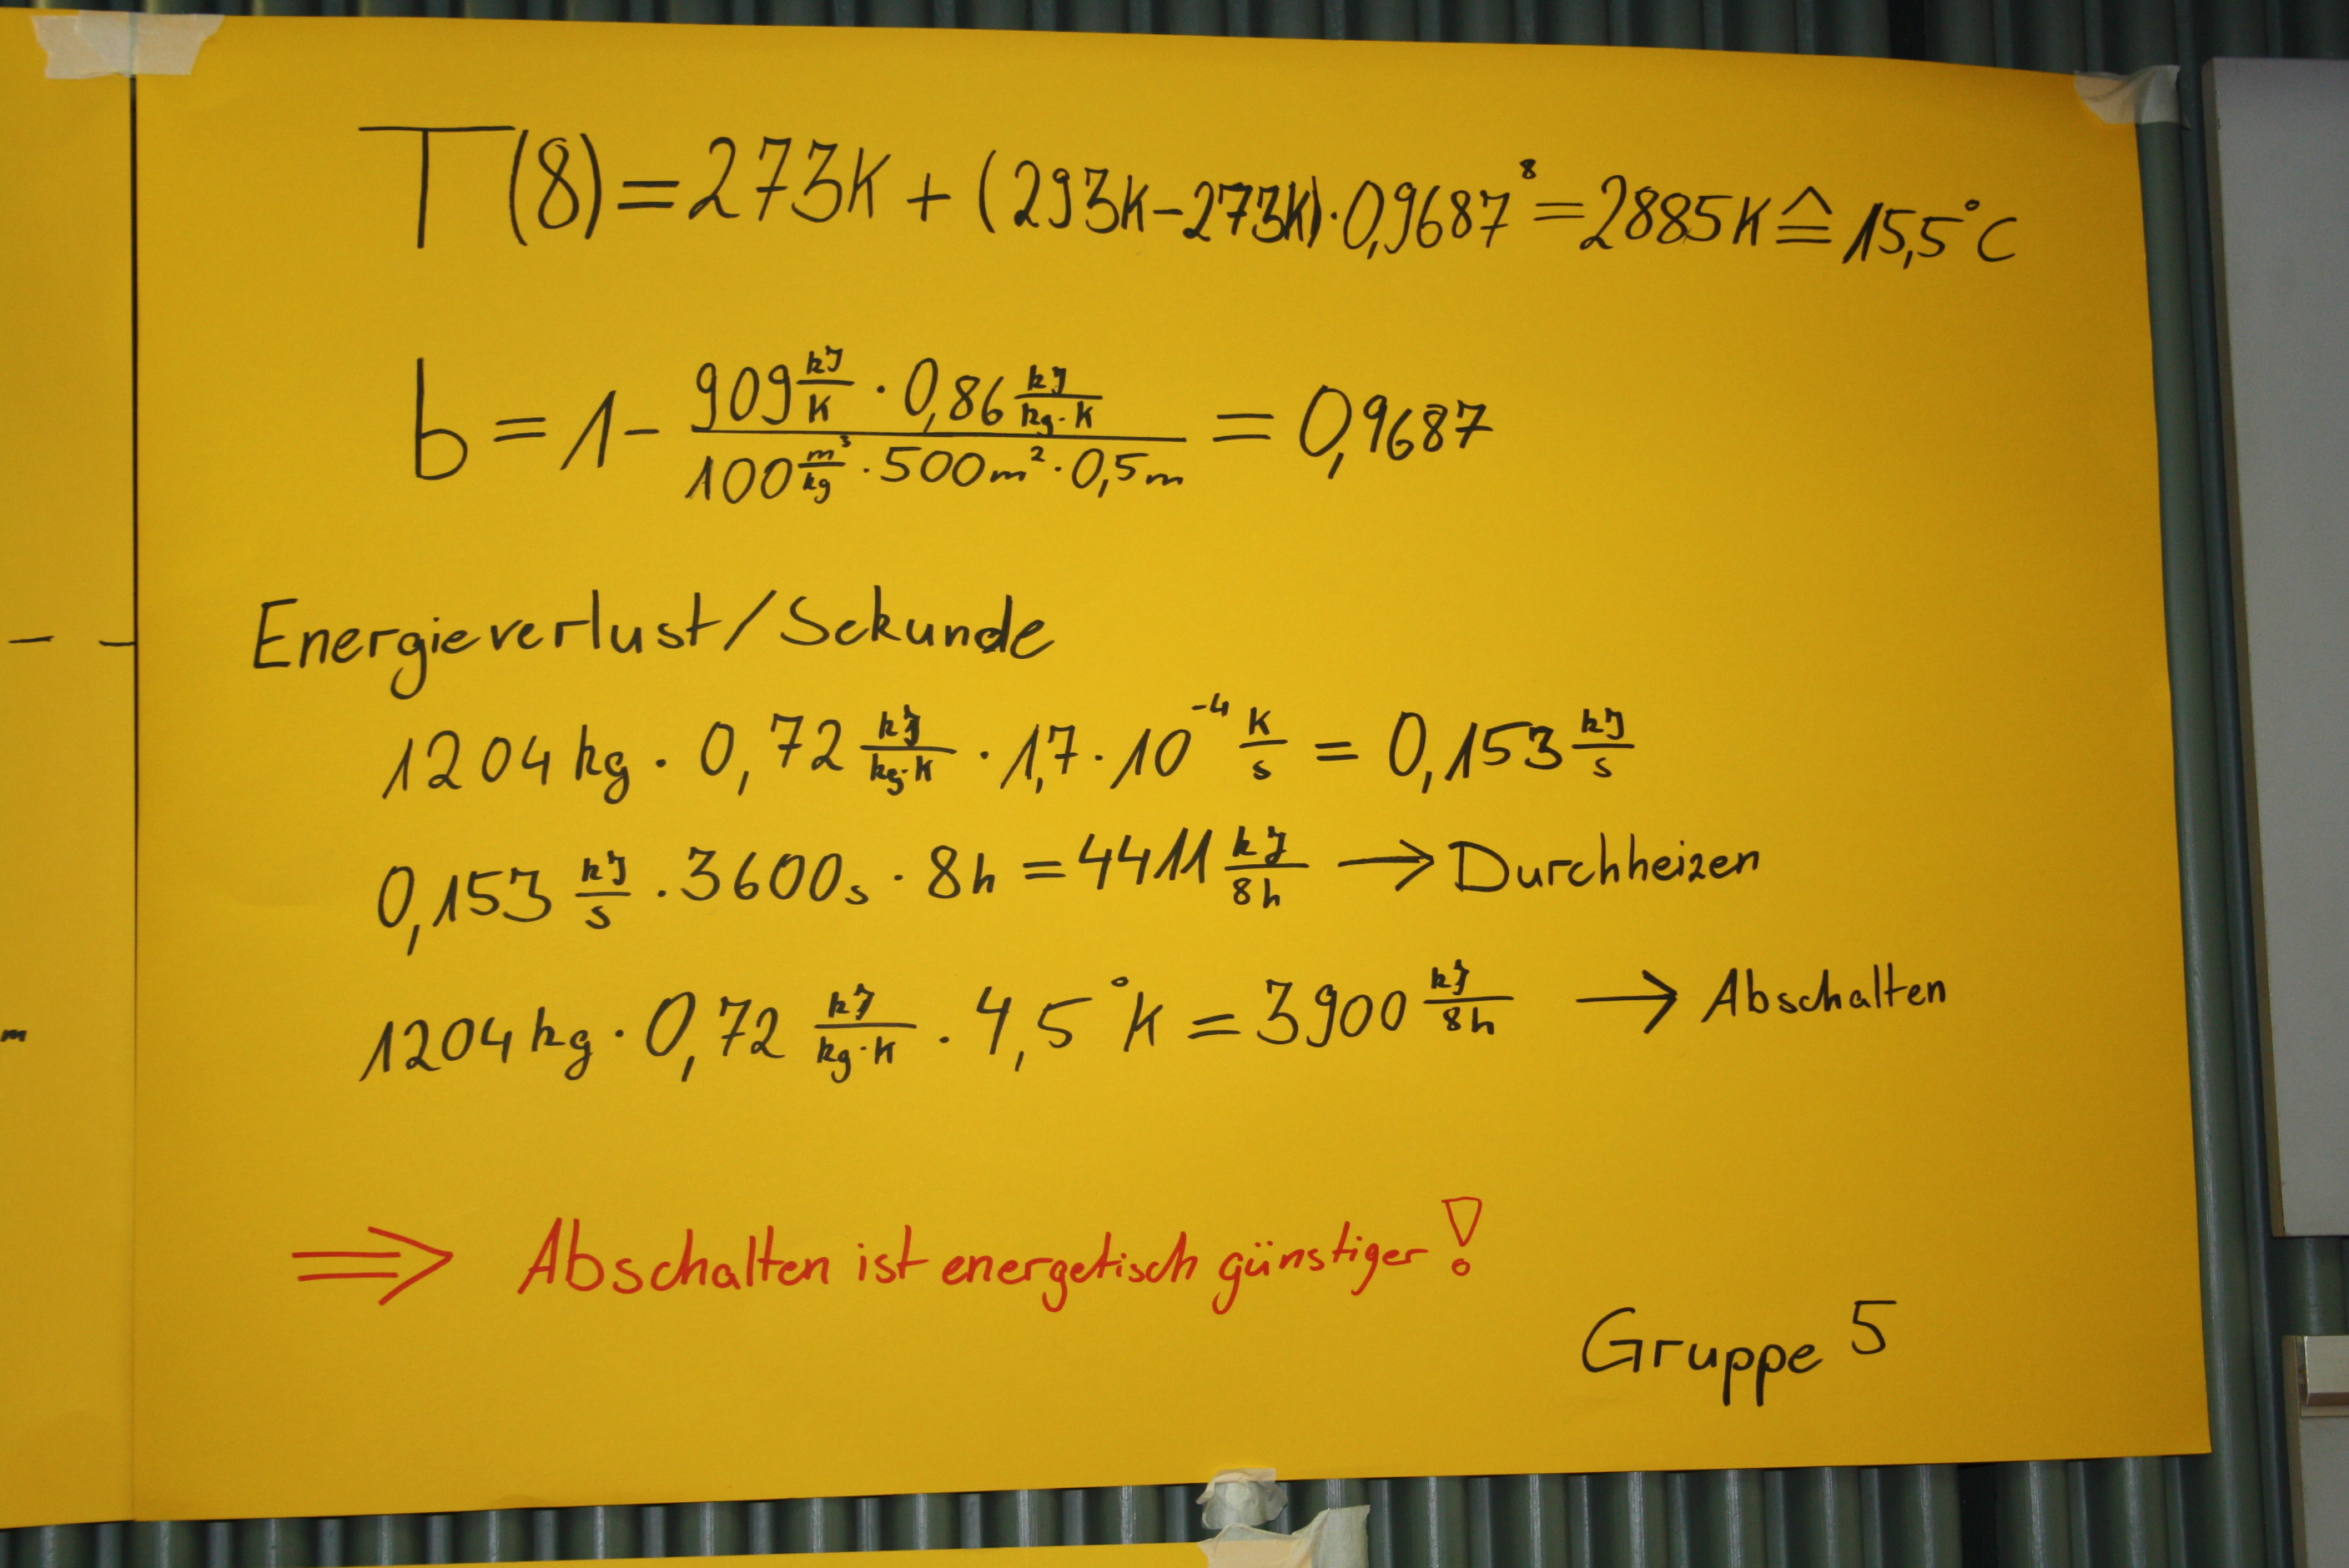 T(8) = 273K + (293K - 273K) · 0,9687⁸ = 2885K ≙ 15,5°C
b = 1 - (909 kJ/K · 0,86 kJ/(kg·K)) / (100 m³/kg · 500m² · 0,5m) = 0,9687
Energieverlust/Sekunde
1204 kg · 0,72 kJ/(kg·K) · 1,7 · 10⁻⁴ K/s = 0,153 kJ/s
0,153 kJ/s · 3600s · 8h = 4411 kJ/8h → Durchheizen
1204 kg · 0,72 kJ/(kg·K) · 4,5°K = 3900 kJ/8h → Abschalten
⇒ Abschalten ist energetisch günstiger!
Gruppe 5